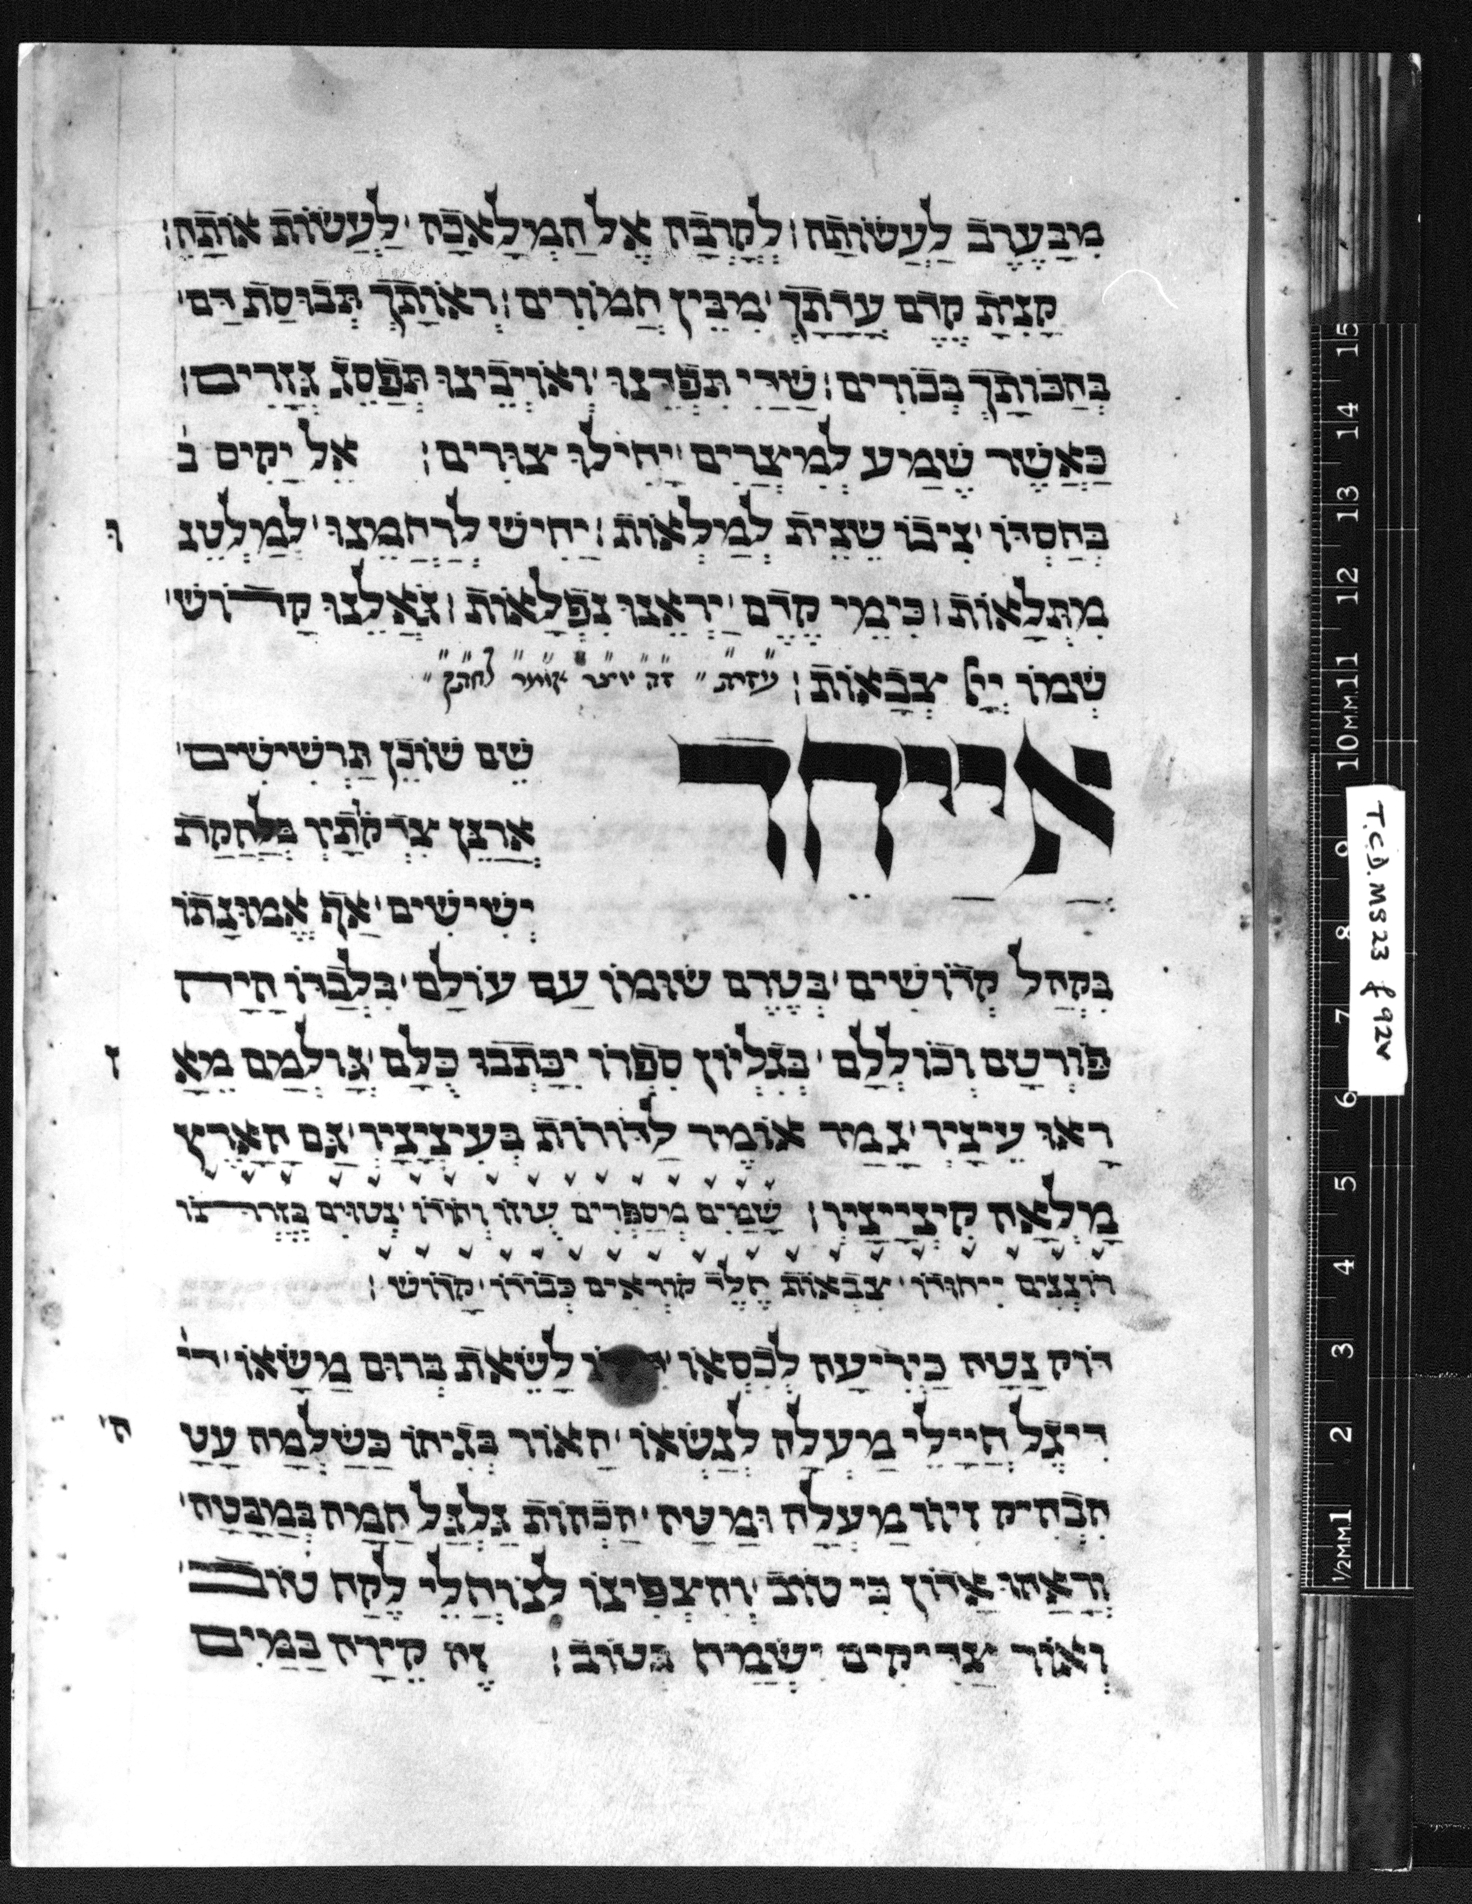 מִבָּעֶרֶב לַעֲשׂוֹתָהּ׃ לְקָרְבָה אֶל הַמְּלָאכָה׳ לַעֲשׂוֹת אוֹתָהּ׃
קָנִיתָ קֶדֶם עֲדָתָךְ׳ מִבֵּין חֲמוֹרִים׃ וְאוֹתָךְ תְּבוּסַת דַּם׳
בְּהַכּוֹתָךְ בְּכוֹרִים׃ שַׁדַּי תִּפְדֵּנוּ׳ וְאוֹיְבֵינוּ תְּפַסֵּג גְּזָרִים׃
כַּאֲשֶׁר שֵׁמַע לְמִצְרַיִם׳ יָחִילוּ צוּרִים׃ אֵל יָקִים ב׳
בְּחַסְדּוֹ׳ נִיבוֹ שֵׁנִית לְמַלְאוֹת׃ יַחִישׁ לְרַחֲמֵנוּ׳ לְמַלְּטֵנ
ו
מִתְּלָאוֹת׃ כִּימֵי קֶדֶם׳ יַרְאֵנוּ נִפְלָאוֹת׃ גֹּאֲלֵנוּ קָדוֹשׁ׳
שְׁמוֹ יְיָ צְבָאוֹת׃ זה יוצר אומר לחתן
אֲיַיחֵד
שֵׁם שׁוֹכֵן תַּרְשִׁישִׁים׳
אֲרַנֵּן צִדְקָתָיו בְּלַהֲקַת
יְשִׁישִׁים׳ אַף אֱמוּנָתוֹ
בִּקְהַל קְדוֹשִׁים׳ בְּטֶרֶם שׂוּמוֹ עַם עוֹלָם׳ בִּלְבַדּוֹ הָיָה
פּוֹרְטָם וְכוֹלְלָם׳ בְּגִלְיוֹן סִפְרוֹ יִכָּתְבוּ כֻלָּם׳ גּוֹלְמָם מֵאָ
ז
רָאוּ עֵינָיו׳ נָמַד אוֹמֶר לַדּוֹרוֹת בְּעִינְיָנָיו׳ גַּם הָאָרֶץ
מָלְאָה קִינְיָינָיו׃ שָׁמַיִם מְסַפְּרִים עֻוזוֹ וְהוֹדוֹ׳ נְטוּיִם בִּגְזֵרָתוֹ
רוֹנְנִים יִיחוּדוֹ׳ צִבְאוֹת חֶלֶד קוֹרְאִים כְּבוֹדוֹ׳ קָדוֹשׁ׃
דּוֹק נָטָה כַּיְרִיעָה לְכִסְאוֹ׳ לָשֵׂאת בְּרוּם מַשָּׂאוֹ׳ די
דִּיגֶל חֲיָילֵי מַעְלָה לְנַשְּׂאוֹ׳ הָאוֹר בְּגִיהוֹ כַּשַּׂלְמָה עָטָ
ה׳
הִבְהִיק זִיווֹ מַעְלָה וּמַטָּה׳ הַכְהוֹת גַּלְגַּל חַמָּה בְּמַבָּטָהּ׳
וְרָאָהוּ אָדוֹן כִּי טוֹב׳ וְהִצְפִּינוֹ לְנוֹחֲלֵי לֶקַח טוֹב׳
וְאוֹר צַדִּיקִים יִשְׂמַח בְּטוּב׃ זֶה קֵירָה בַּמַּיִם
T.C.D. MS 23 f 92v